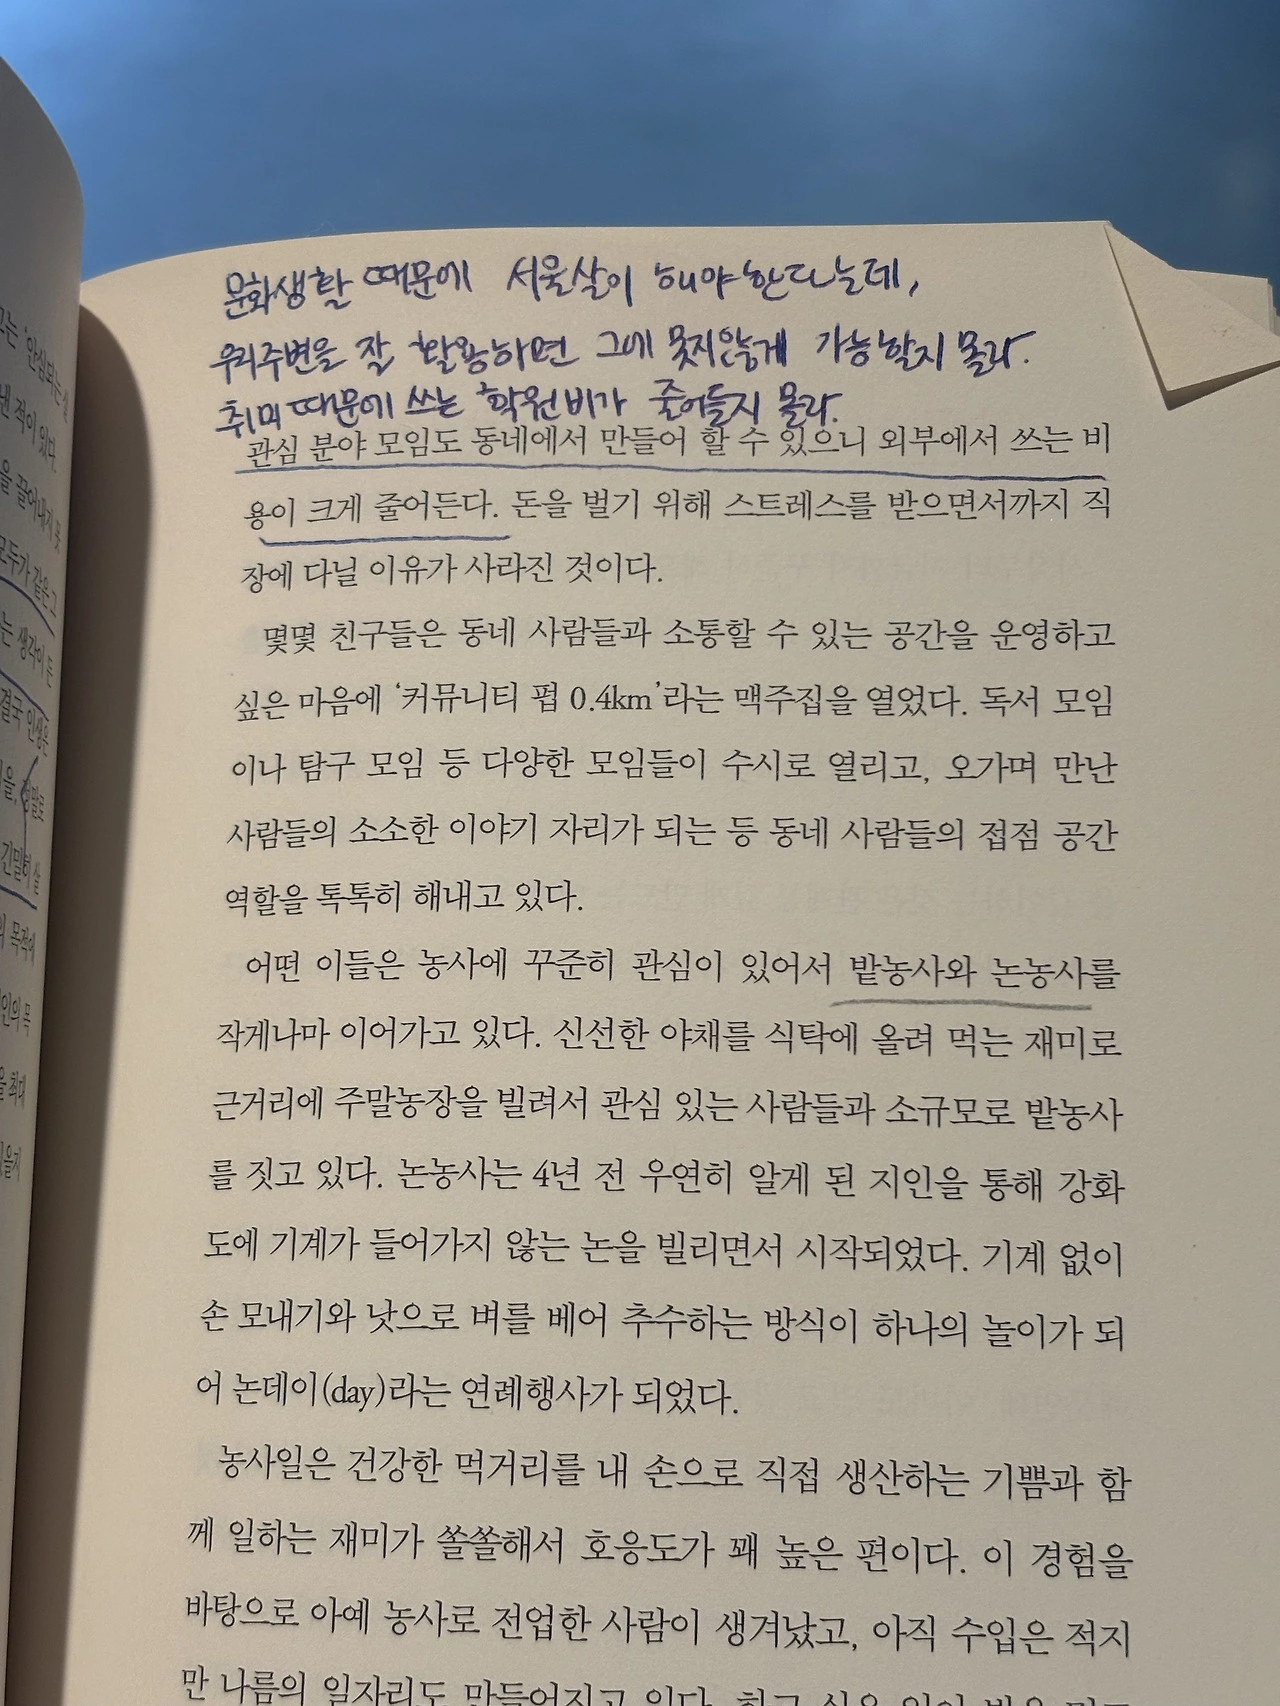 문화생활 때문에 서울살이 해야한다는데,
우리주변을 잘 활용하면 그에 못지않게 가능할지 몰라.
취미 때문에 쓰는 학원비가 줄어들지 몰라.
관심 분야 모임도 동네에서 만들어 할 수 있으니 외부에서 쓰는 비
용이 크게 줄어든다. 돈을 벌기 위해 스트레스를 받으면서까지 직
장에 다닐 이유가 사라진 것이다.
몇몇 친구들은 동네 사람들과 소통할 수 있는 공간을 운영하고
싶은 마음에 ‘커뮤니티 펍 0.4km’라는 맥주집을 열었다. 독서 모임
이나 탐구 모임 등 다양한 모임들이 수시로 열리고, 오가며 만난
사람들의 소소한 이야기 자리가 되는 등 동네 사람들의 접점 공간
역할을 톡톡히 해내고 있다.
어떤 이들은 농사에 꾸준히 관심이 있어서 밭농사와 논농사를
작게나마 이어가고 있다. 신선한 야채를 식탁에 올려 먹는 재미로
근거리에 주말농장을 빌려서 관심 있는 사람들과 소규모로 밭농사
를 짓고 있다. 논농사는 4년 전 우연히 알게 된 지인을 통해 강화
도에 기계가 들어가지 않는 논을 빌리면서 시작되었다. 기계 없이
손 모내기와 낫으로 벼를 베어 추수하는 방식이 하나의 놀이가 되
어 논데이(day)라는 연례행사가 되었다.
농사일은 건강한 먹거리를 내 손으로 직접 생산하는 기쁨과 함
께 일하는 재미가 쏠쏠해서 호응도가 꽤 높은 편이다. 이 경험을
바탕으로 아예 농사로 전업한 사람이 생겨났고, 아직 수입은 적지
만 나름의 일자리도 만들어지고 있다.